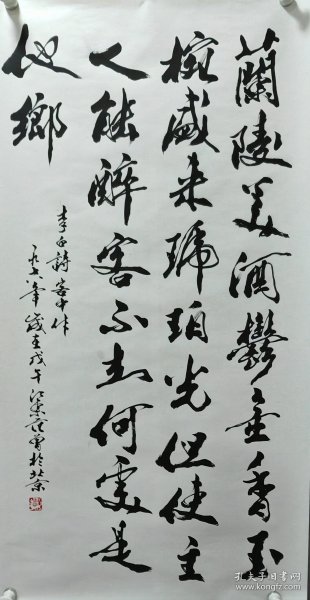 蘭陵美酒鬱金香玉
椀盛来琥珀光但使主
人能醉客不知何處是
他鄉
李白詩客中作
一九七八年歲在戊午江東范曾於北京
孔夫子旧书网